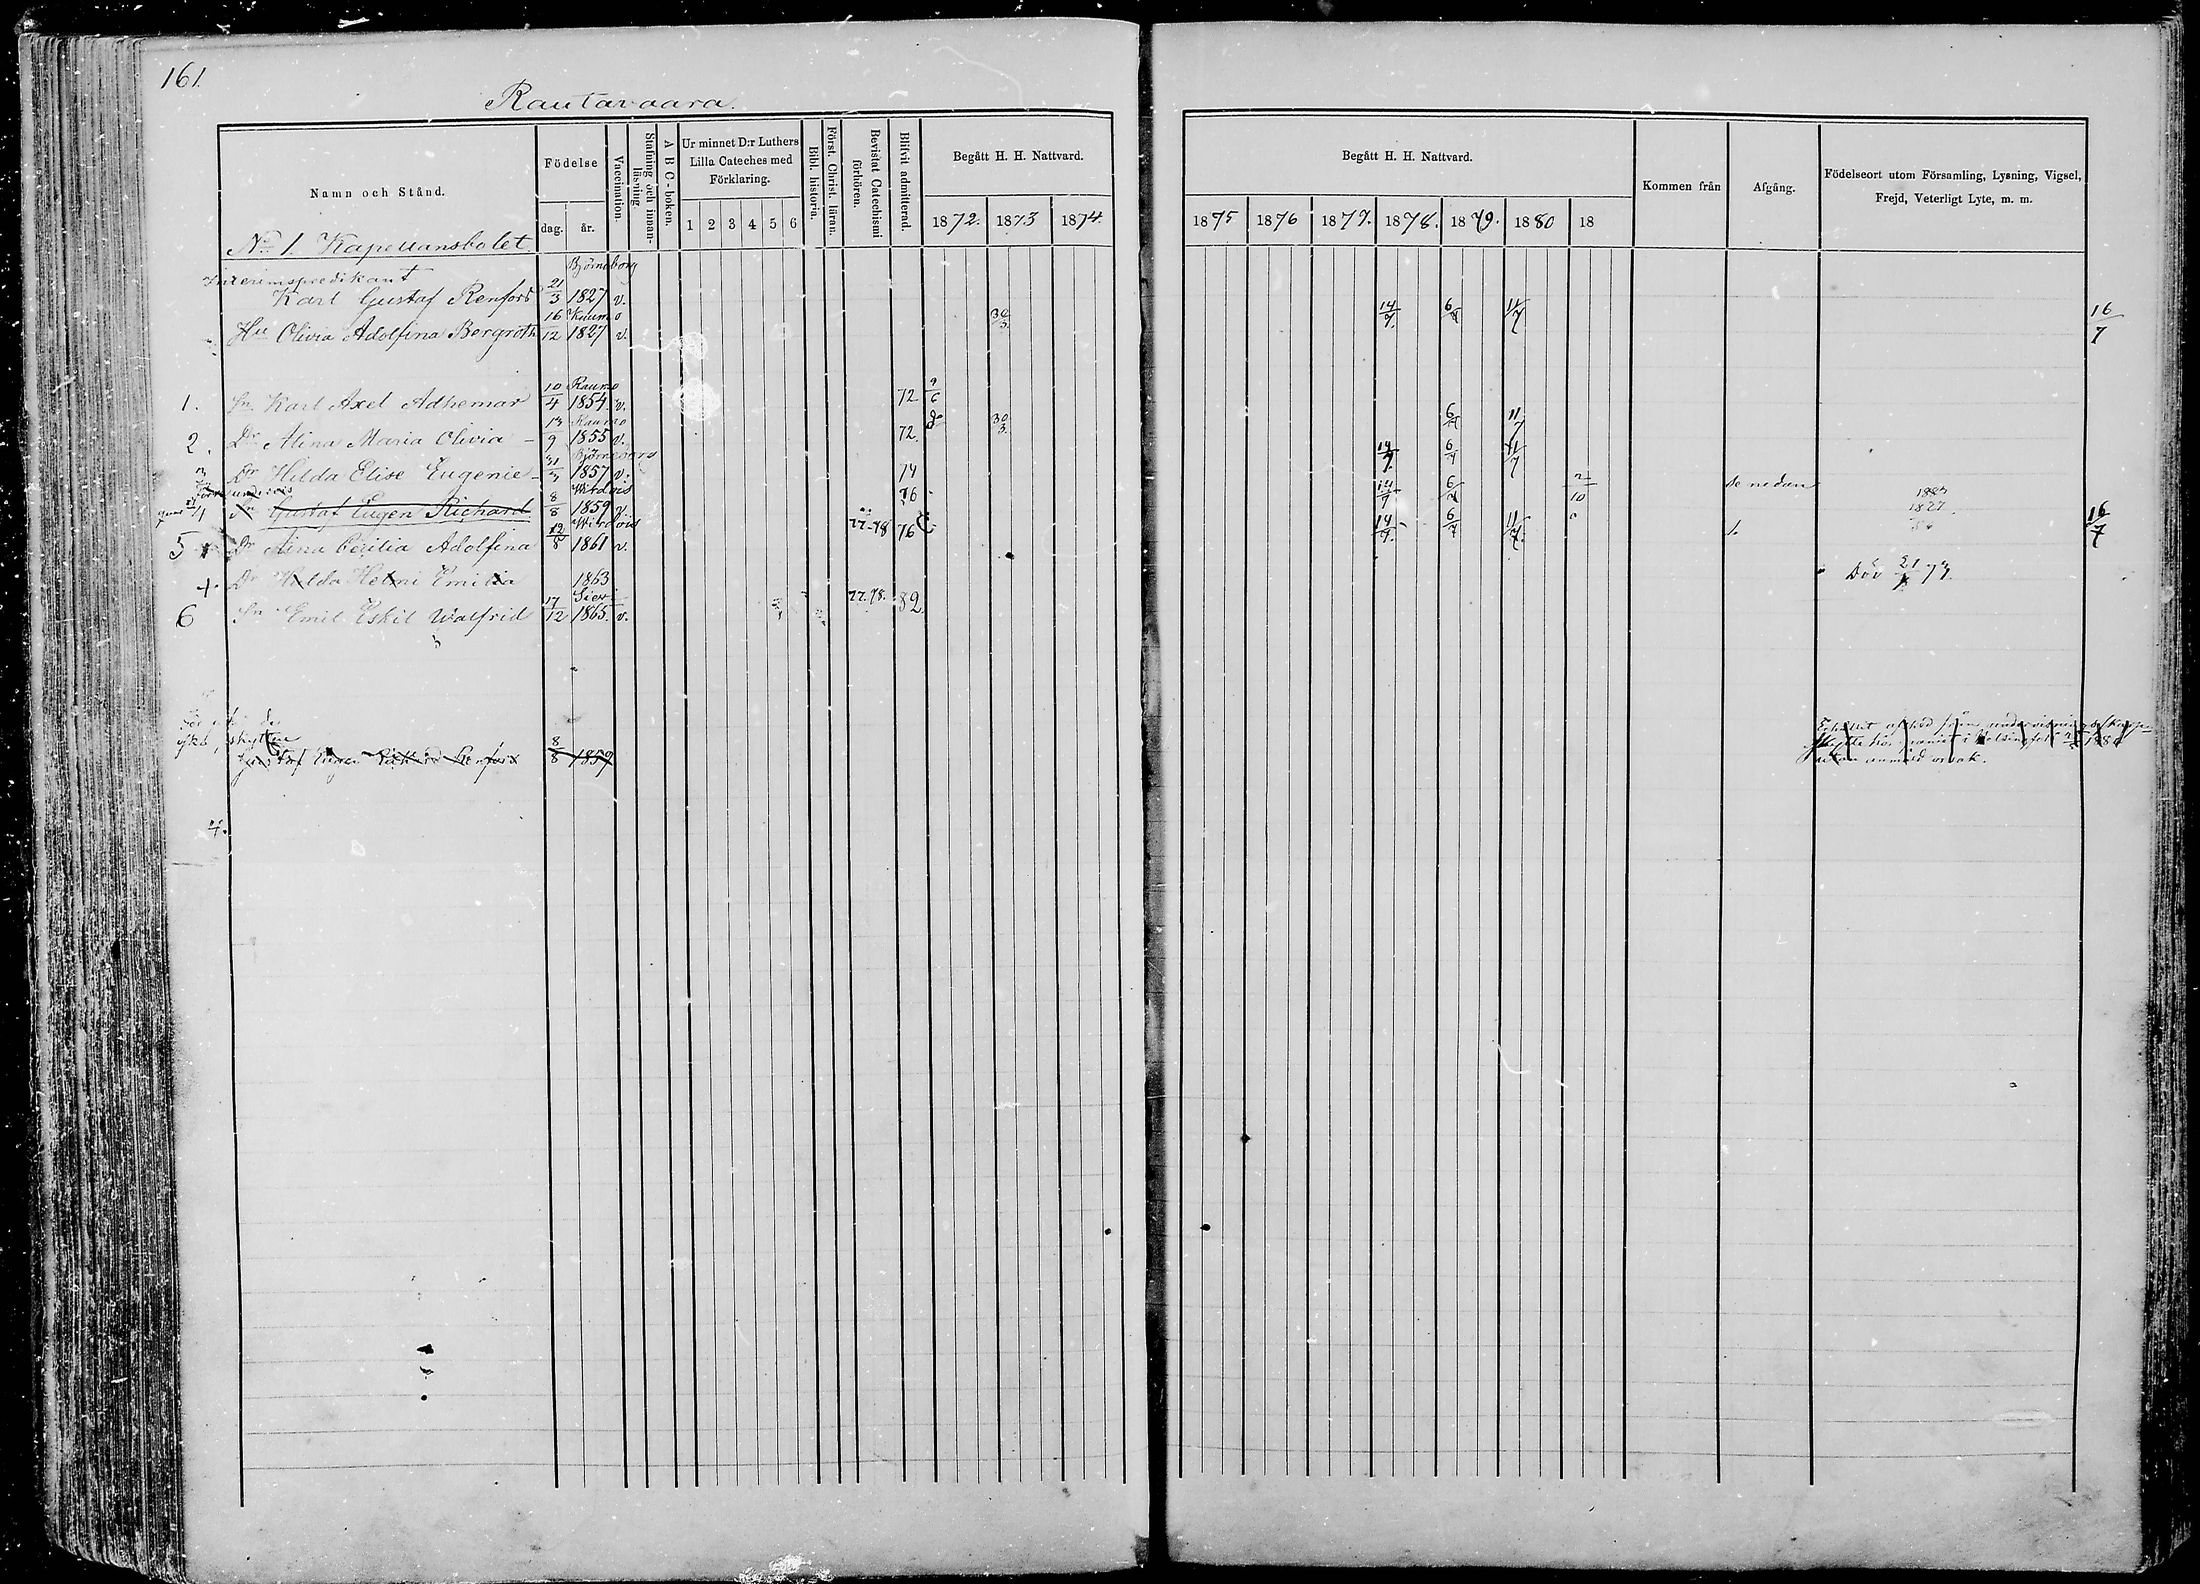 161.
Rautavaara.
Namn och Stånd.
Födelse
dag. år.
Vaccination.
Stafning och innan-läsning.
A B C-boken.
Ur minnet D:r Luthers Lilla Cateches med Förklaring.
1 2 3 4 5 6
Bibl. historia.
Först. Christ. läran.
Bevistat Catechismi förhören.
Blifvit admitterad.
Begått H. H. Nattvard.
1872. 1873 1874.
Begått H. H. Nattvard.
1875 1876 1877. 1878. 1879. 1880 18
Kommen från
Afgång.
Födelseort utom Församling, Lysning, Vigsel, Frejd, Veterligt Lyte, m. m.
No 1. Kapellansbolet
Interimspredikant Björneborg
Karl Gustaf Renfors 21/3 1827 v. 14/7 6/7 11/7 16/7
Raumo
Hu Olivia Adolfina Bergroth 16/12 1827 v. 30/3
Raumo
1. Sn Karl Axel Adhemar 10/4 1854. v. 72 9/6
Raumo
2. Dr Alina Maria Olivia 13/9 1855 v. 72 do 30/3 6/7 11/7
Björneborg
3 Dr Hilda Elise Eugenie 31/3 1857 v. 74 14/7 6/7 11/7
Wirdois
4 Sn Gustaf Eugen Richard 8/8 1859 v. 76 14/7 6/7 2/10 se nedan
1827
Wirdois
5 Dr Aina Cecilia Adolfina 19/8 1861 v. 77-78 76 14/7 6/7 11/7 16/7
+. Dr Hilda Helmi Emilia 1863 Död 21/ 73.
6 Sn Emil Eskil Walfrid 17/12 1865. v. 77.78. 82
skytten
Gustaf Eugen Richard Renfors 8/8 1859
i Helsingfors
utan anmäld orsak.
4.